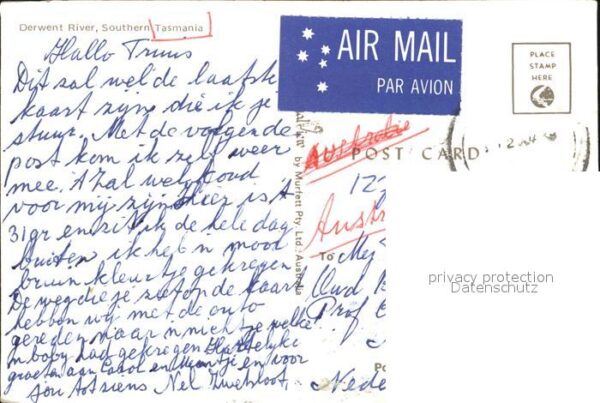 Derwent River, Southern Tasmania
Hallo Truus
Dit sal wel de laatste
kaart zijn die ik je
stuur. Met de volgende
post kom ik zelf weer
mee. Zal wel koud
voor mij zijn hier is 't
31gr en zit ik de hele dag
buiten ik heb 'n mooi
bruin kleurtje gekregen
De weg die je ziet op de kaart
hebben wij met de auto
gereden, maar 'n nichtje welke
'n baby had gekregen Hartelijke
groeten aan Carol en en voor
jou tot siens Nel
AIR MAIL
PAR AVION
PLACE
STAMP
HERE
Australie
POST CARD
by Murfett Pty. Ltd. Australia
Austr
To Mej
Oud
Prof
Nede
privacy protection
Datenschutz